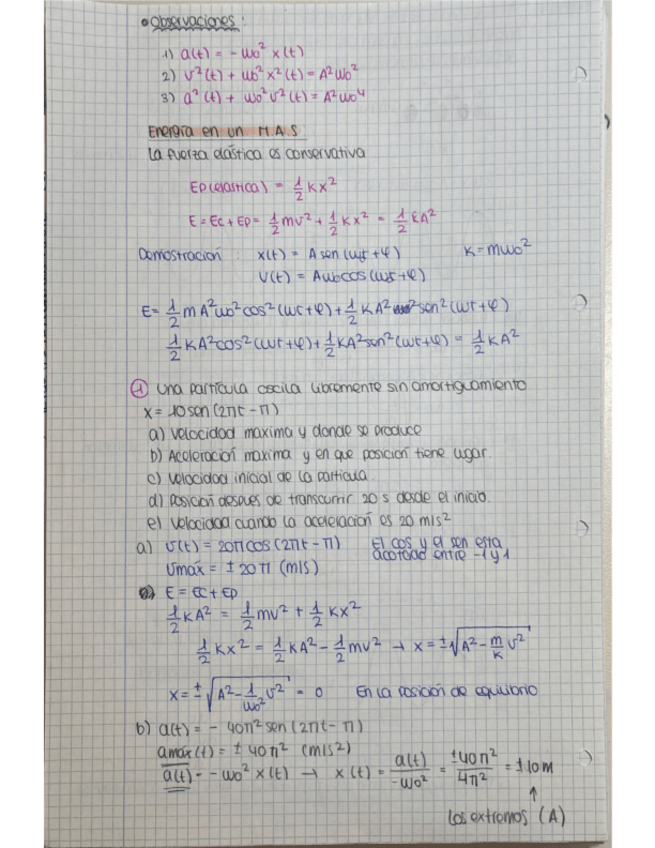 • Observaciones:
1) a(t) = - ω0² x(t)
2) v²(t) + ω0² x²(t) = A²ω0²
3) a²(t) + ω0² v²(t) = A²ω0⁴
Energía en un M.A.S
La fuerza elástica es conservativa
Ep(elastica) = 1/2 Kx²
E = Ec + Ep = 1/2 mv² + 1/2 Kx² = 1/2 KA²
Demostración : x(t) = A sen(ωt + φ) K = mω0²
v(t) = Aω0cos(ωt+φ)
E = 1/2 m A²ω0²cos²(ωt+φ) + 1/2 KA² sen²(ωt+φ)
1/2 KA²cos²(ωt+φ) + 1/2 KA²sen²(ωt+φ) = 1/2 KA²
1 Una partícula oscila libremente sin amortiguamiento
x = 10 sen(2πt - π)
a) Velocidad maxima y donde se produce
b) Aceleración maxima y en que posición tiene lugar.
c) Velocidad inicial de la partícula
d) Posición despues de transcurrir 20 s desde el inicio.
e) Velocidad cuando la aceleración es 20 m/s²
a) v(t) = 20π cos(2πt - π) El cos y el sen esta
acotado entre -1 y 1
vmáx = ± 20π (m/s)
E = Ec + Ep
1/2 KA² = 1/2 mv² + 1/2 Kx²
1/2 Kx² = 1/2 KA² - 1/2 mv² → x = ±√(A² - m/K v²)
x = ±√(A² - 1/ω0² v²) = 0 En la posición de equilibrio
b) a(t) = - 40π² sen(2πt - π)
amáx(t) = ± 40π² (m/s²)
a(t) = - ω0² x(t) → x(t) = a(t)/-ω0² = ±40π²/4π² = ±10m
↑
Los extremos (A)